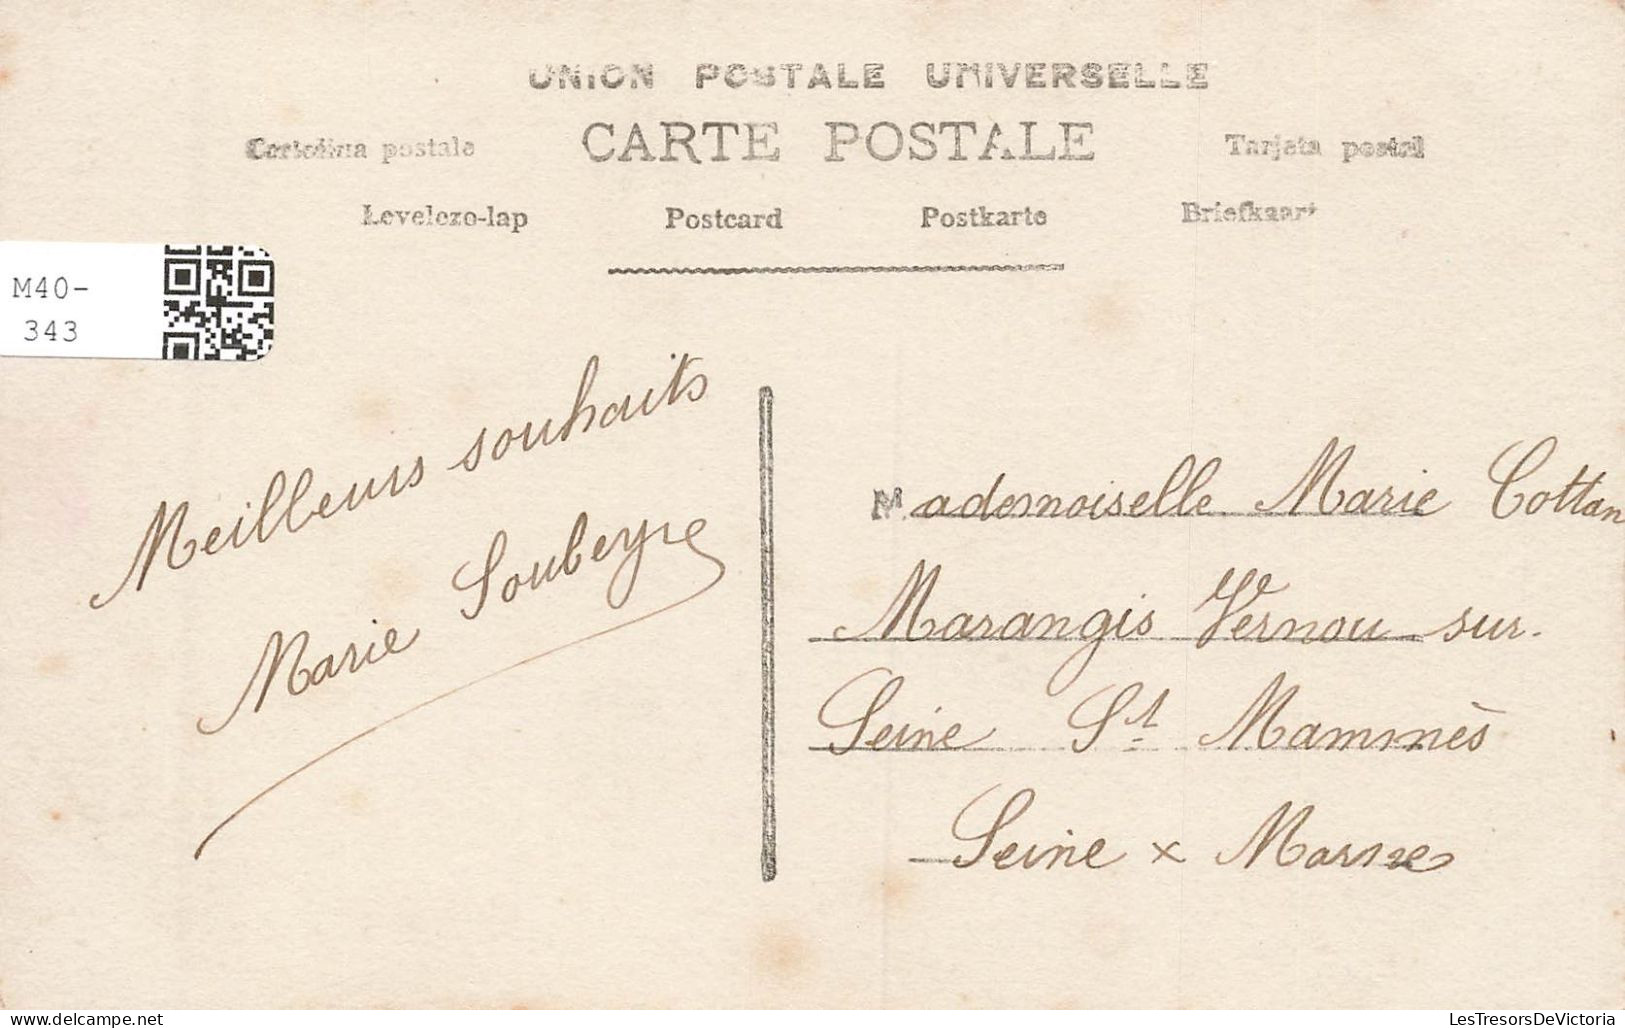 UNION POSTALE UNIVERSELLE
Cartolina postale CARTE POSTALE Tarjeta postal
Levelezo-lap Postcard Postkarte Briefkaart
M40-
343
Meilleurs souhaits
Marie Soubeyre
Mademoiselle Marie Cottan
Marangis Vernou sur
Seine St Mammès
Seine x Marne
LesTresorsDeVictoria
www.delcampe.net